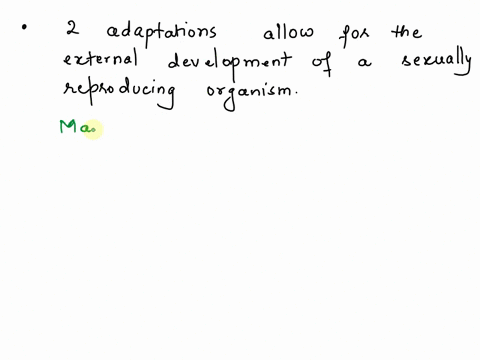 • 2 adaptations allow for the
external development of a sexually
reproducing organism.
Ma